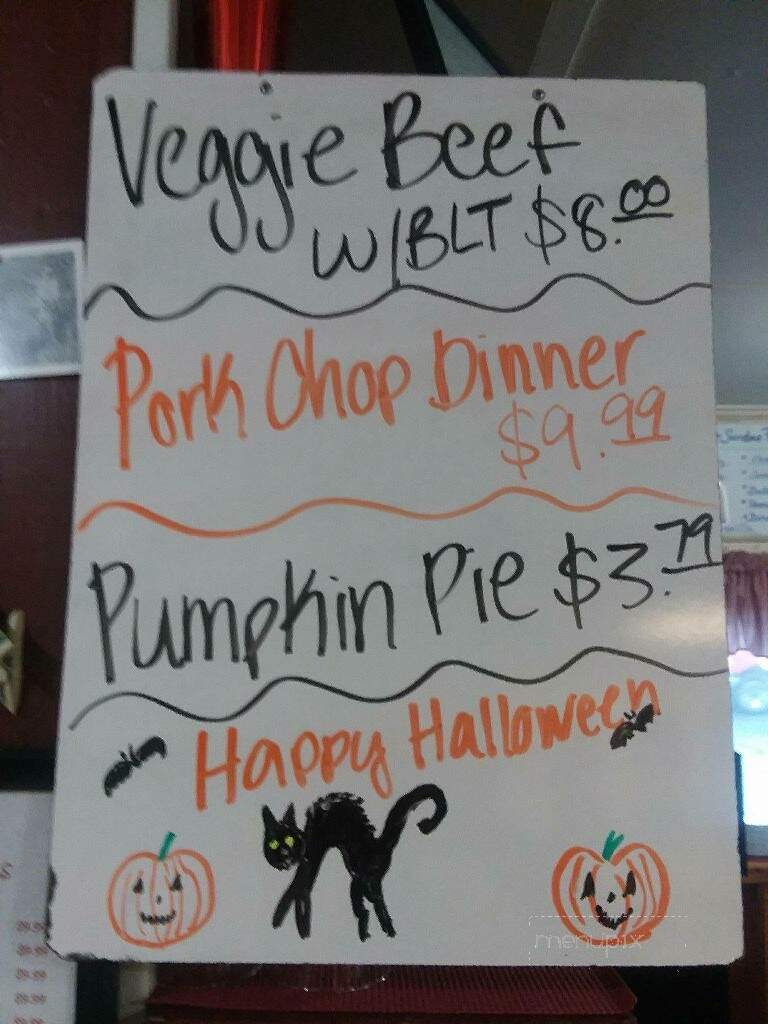 Veggie Beef
W/BLT $8.00
Pork Chop Dinner
$9.99
Pumpkin Pie $3.79
Happy Halloween
menupix